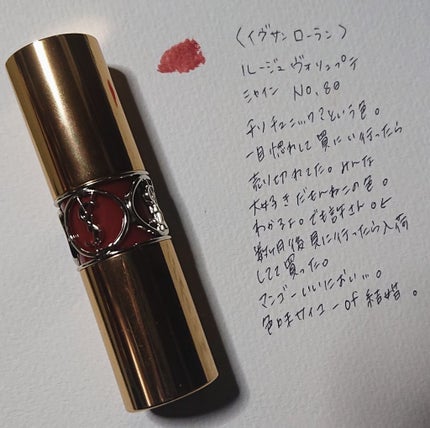 〈イヴサンローラン〉
ルージュ ヴォリュプテ
シャイン No.80
チリチュニック?という色。
一目惚れして買いに行ったら
売り切れてた。みんな
大好きだもんねこの色。
わかるよ。でも許さんよ
数日後買いに行ったら入荷
してて買った。
マンゴーいいにおい。
色味サイコーof結婚。
YSL